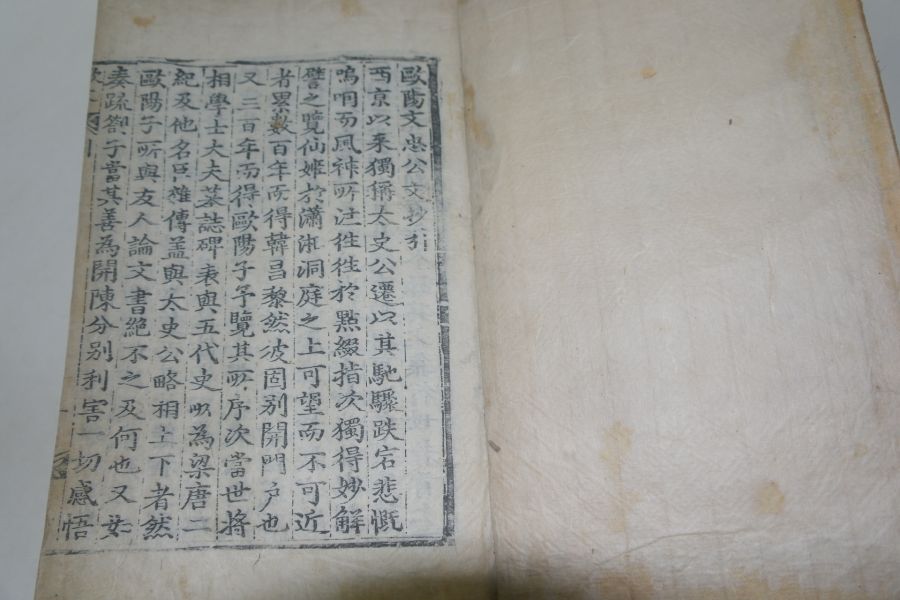 歐陽文忠公文抄引
西京以來獨稱太史公遷以其馳驟跌宕悲慨
嗚咽而風神所注往往於點綴指次獨得妙解
譬之覽仙姬於瀟湘洞庭之上可望而不可近
者累數百年而得韓昌黎然彼固別開門戶也
又三百年而得歐陽子予覽其所序次當世將
相學士大夫墓誌碑表與五代史所為梁唐二
紀及他名臣雜傳盖與太史公略相上下者然
歐陽子所與友人論文書絕不之及何也又如
奏疏劄子當其善為開陳分別利害一切感悟